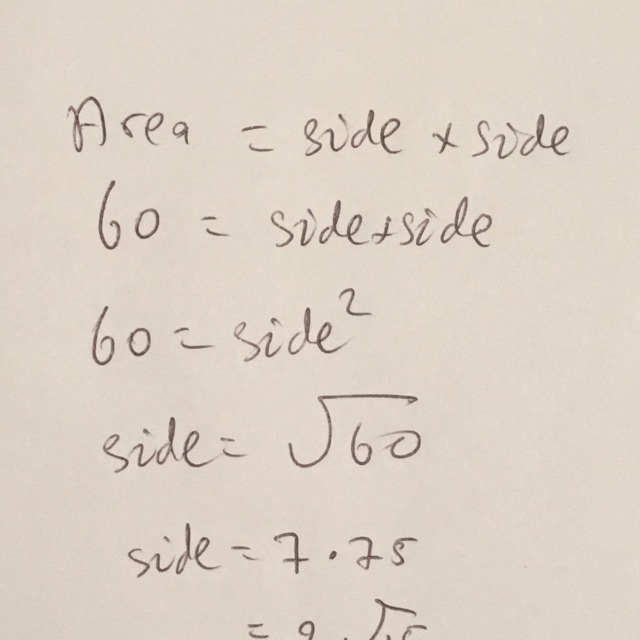 Area = side × side
60 = side × side
60 = side²
side = √60
side = 7.75
=